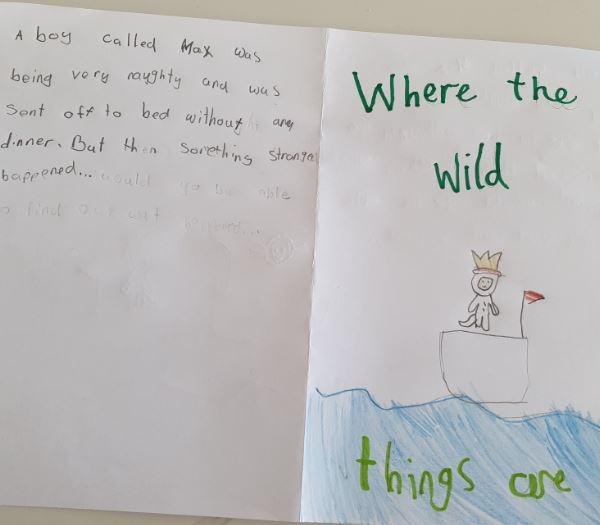 A boy called Max was
being very naughty and was
Sent off to bed without any
dinner. But then Somthing strange
happened... would yo be able
to find out wat happend...
Where the
Wild
things are